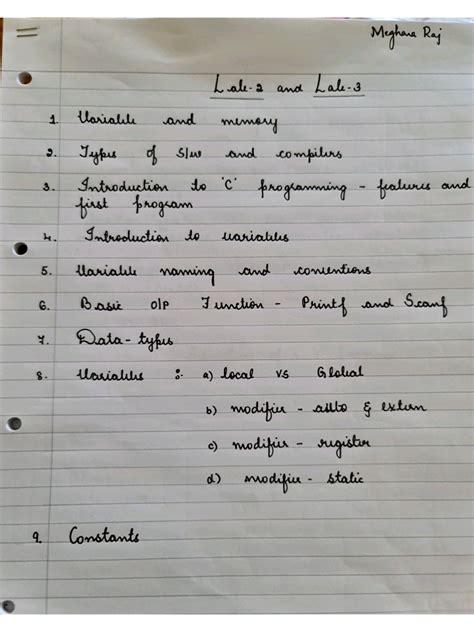 Meghana Raj
Lab-2 and Lab-3
1. Variable and memory
2. Types of S/w and compilers
3. Introduction to 'C' programming - features and
first program
4. Introduction to variables
5. Variable naming and conventions
6. Basic O/P Function - Printf and Scanf
7. Data-types
8. Variables :- a) local vs Global
b) modifier - auto & extern
c) modifier - register
d) modifier - static
9. Constants